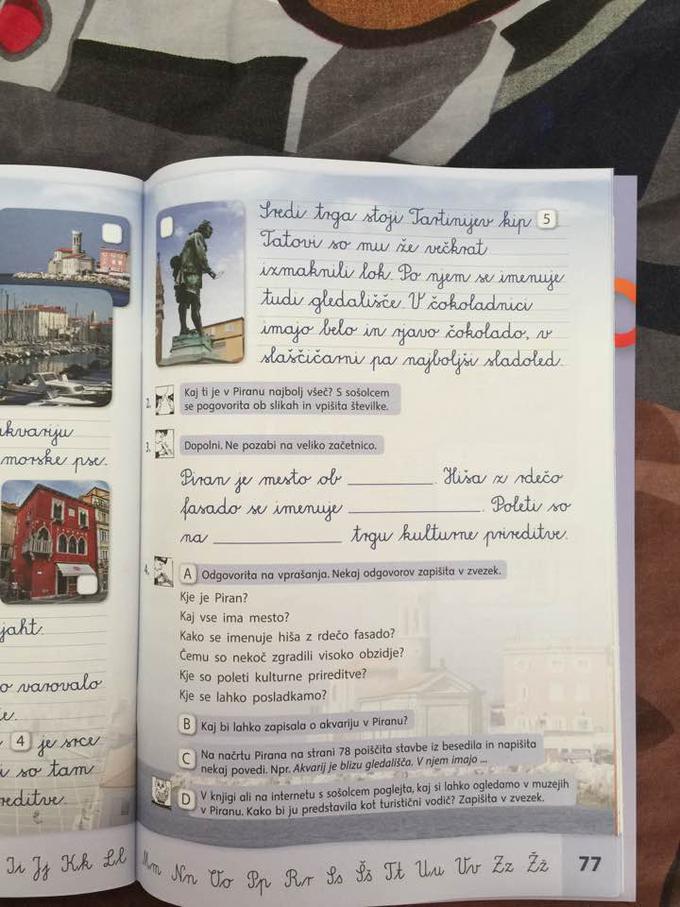 Sredi trga stoji Tartinijev kip 5
Tatovi so mu že večkrat
izmaknili lok. Po njem se imenuje
tudi gledališče. V čokoladnici
imajo belo in rjavo čokolado, v
slaščičarni pa najboljši sladoled.
2. Kaj ti je v Piranu najbolj všeč? S sošolcem
se pogovorita ob slikah in vpišita številke.
akvariju
morske pse.
3. Dopolni. Ne pozabi na veliko začetnico.
Piran je mesto ob ________. Hiša z rdečo
fasado se imenuje ________. Poleti so
na ________ trgu kulturne prireditve.
4. A Odgovorita na vprašanja. Nekaj odgovorov zapišita v zvezek.
Kje je Piran?
Kaj vse ima mesto?
Kako se imenuje hiša z rdečo fasado?
Čemu so nekoč zgradili visoko obzidje?
Kje so poleti kulturne prireditve?
Kje se lahko posladkamo?
jaht.
varovalo
4 je srce
so tam
reditve.
B Kaj bi lahko zapisala o akvariju v Piranu?
C Na načrtu Pirana na strani 78 poiščita stavbe iz besedila in napišita
nekaj povedi. Npr. Akvarij je blizu gledališča. V njem imajo ...
D V knjigi ali na internetu s sošolcem poglejta, kaj si lahko ogledamo v muzejih
v Piranu. Kako bi ju predstavila kot turistični vodič? Zapišita v zvezek.
Ii Jj Kk Ll Mm Nn Oo Pp Rr Ss Šš Tt Uu Vv Zz Žž 77